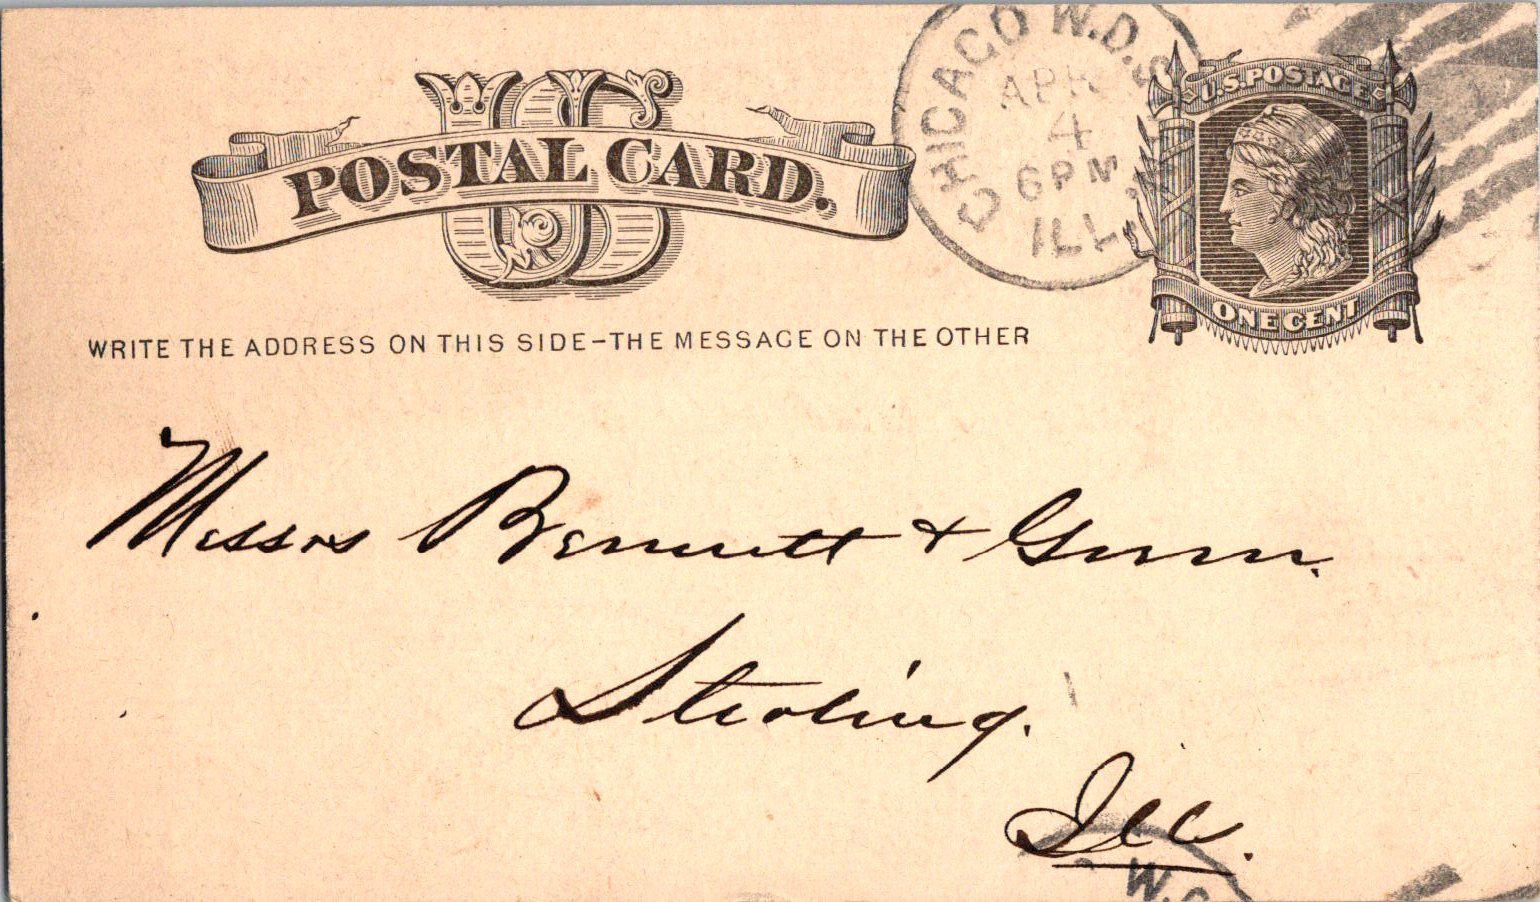 US
POSTAL CARD.
CHICAGO W.D.S
APR
4
6 PM
ILL.
U.S. POSTAGE
ONE CENT
WRITE THE ADDRESS ON THIS SIDE-THE MESSAGE ON THE OTHER
Messrs Bennett & Gunn.
Sterling.
Ill.
W.